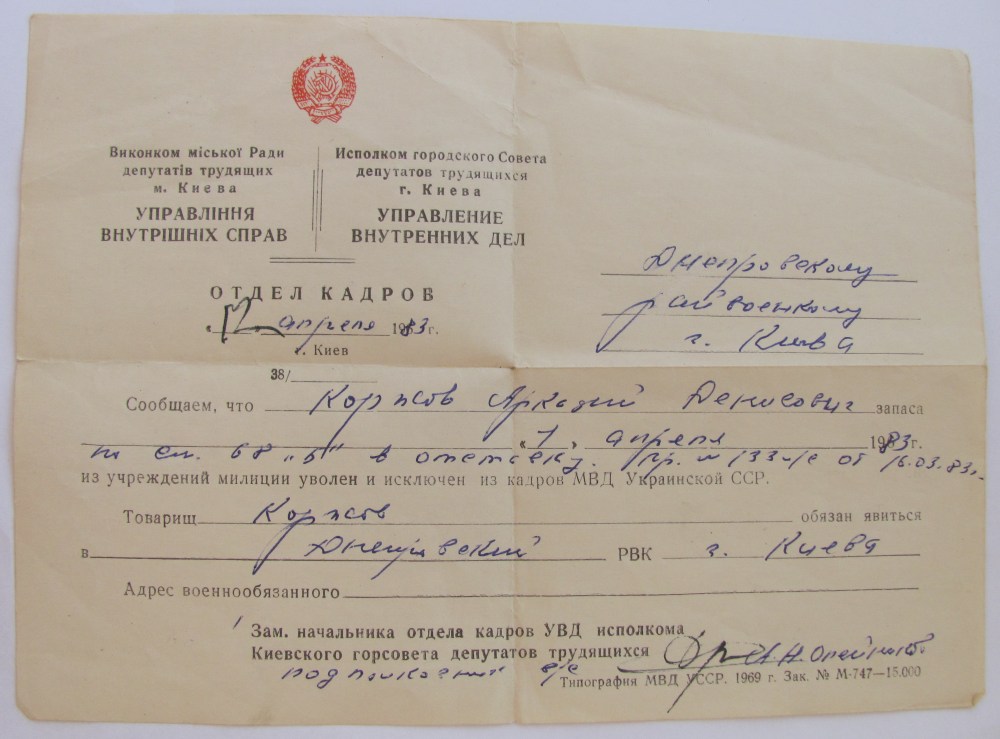 Виконком міської Ради
депутатів трудящих
м. Києва
УПРАВЛІННЯ
ВНУТРІШНІХ СПРАВ
Исполком городского Совета
депутатов трудящихся
г. Киева
УПРАВЛЕНИЕ
ВНУТРЕННИХ ДЕЛ
ОТДЕЛ КАДРОВ
« 12 » апреля 1983 г.
г. Киев
38/
Днепровскому
райвоенкому
г. Киева
Сообщаем, что Коржов Аркадий Денисович запаса
«1» апреля 1983 г.
по ст. 68 „б" в отставку. Пр. № 133 л/с от 16.03.83г.
из учреждений милиции уволен и исключен из кадров МВД Украинской ССР.
Товарищ Коржов обязан явиться
в Днепровский РВК г. Киева
Адрес военнообязанного
Зам. начальника отдела кадров УВД исполкома
Киевского горсовета депутатов трудящихся А.Н. Олейников
подполковник в/с
Типография МВД УССР. 1969 г. Зак. № М-747—15.000